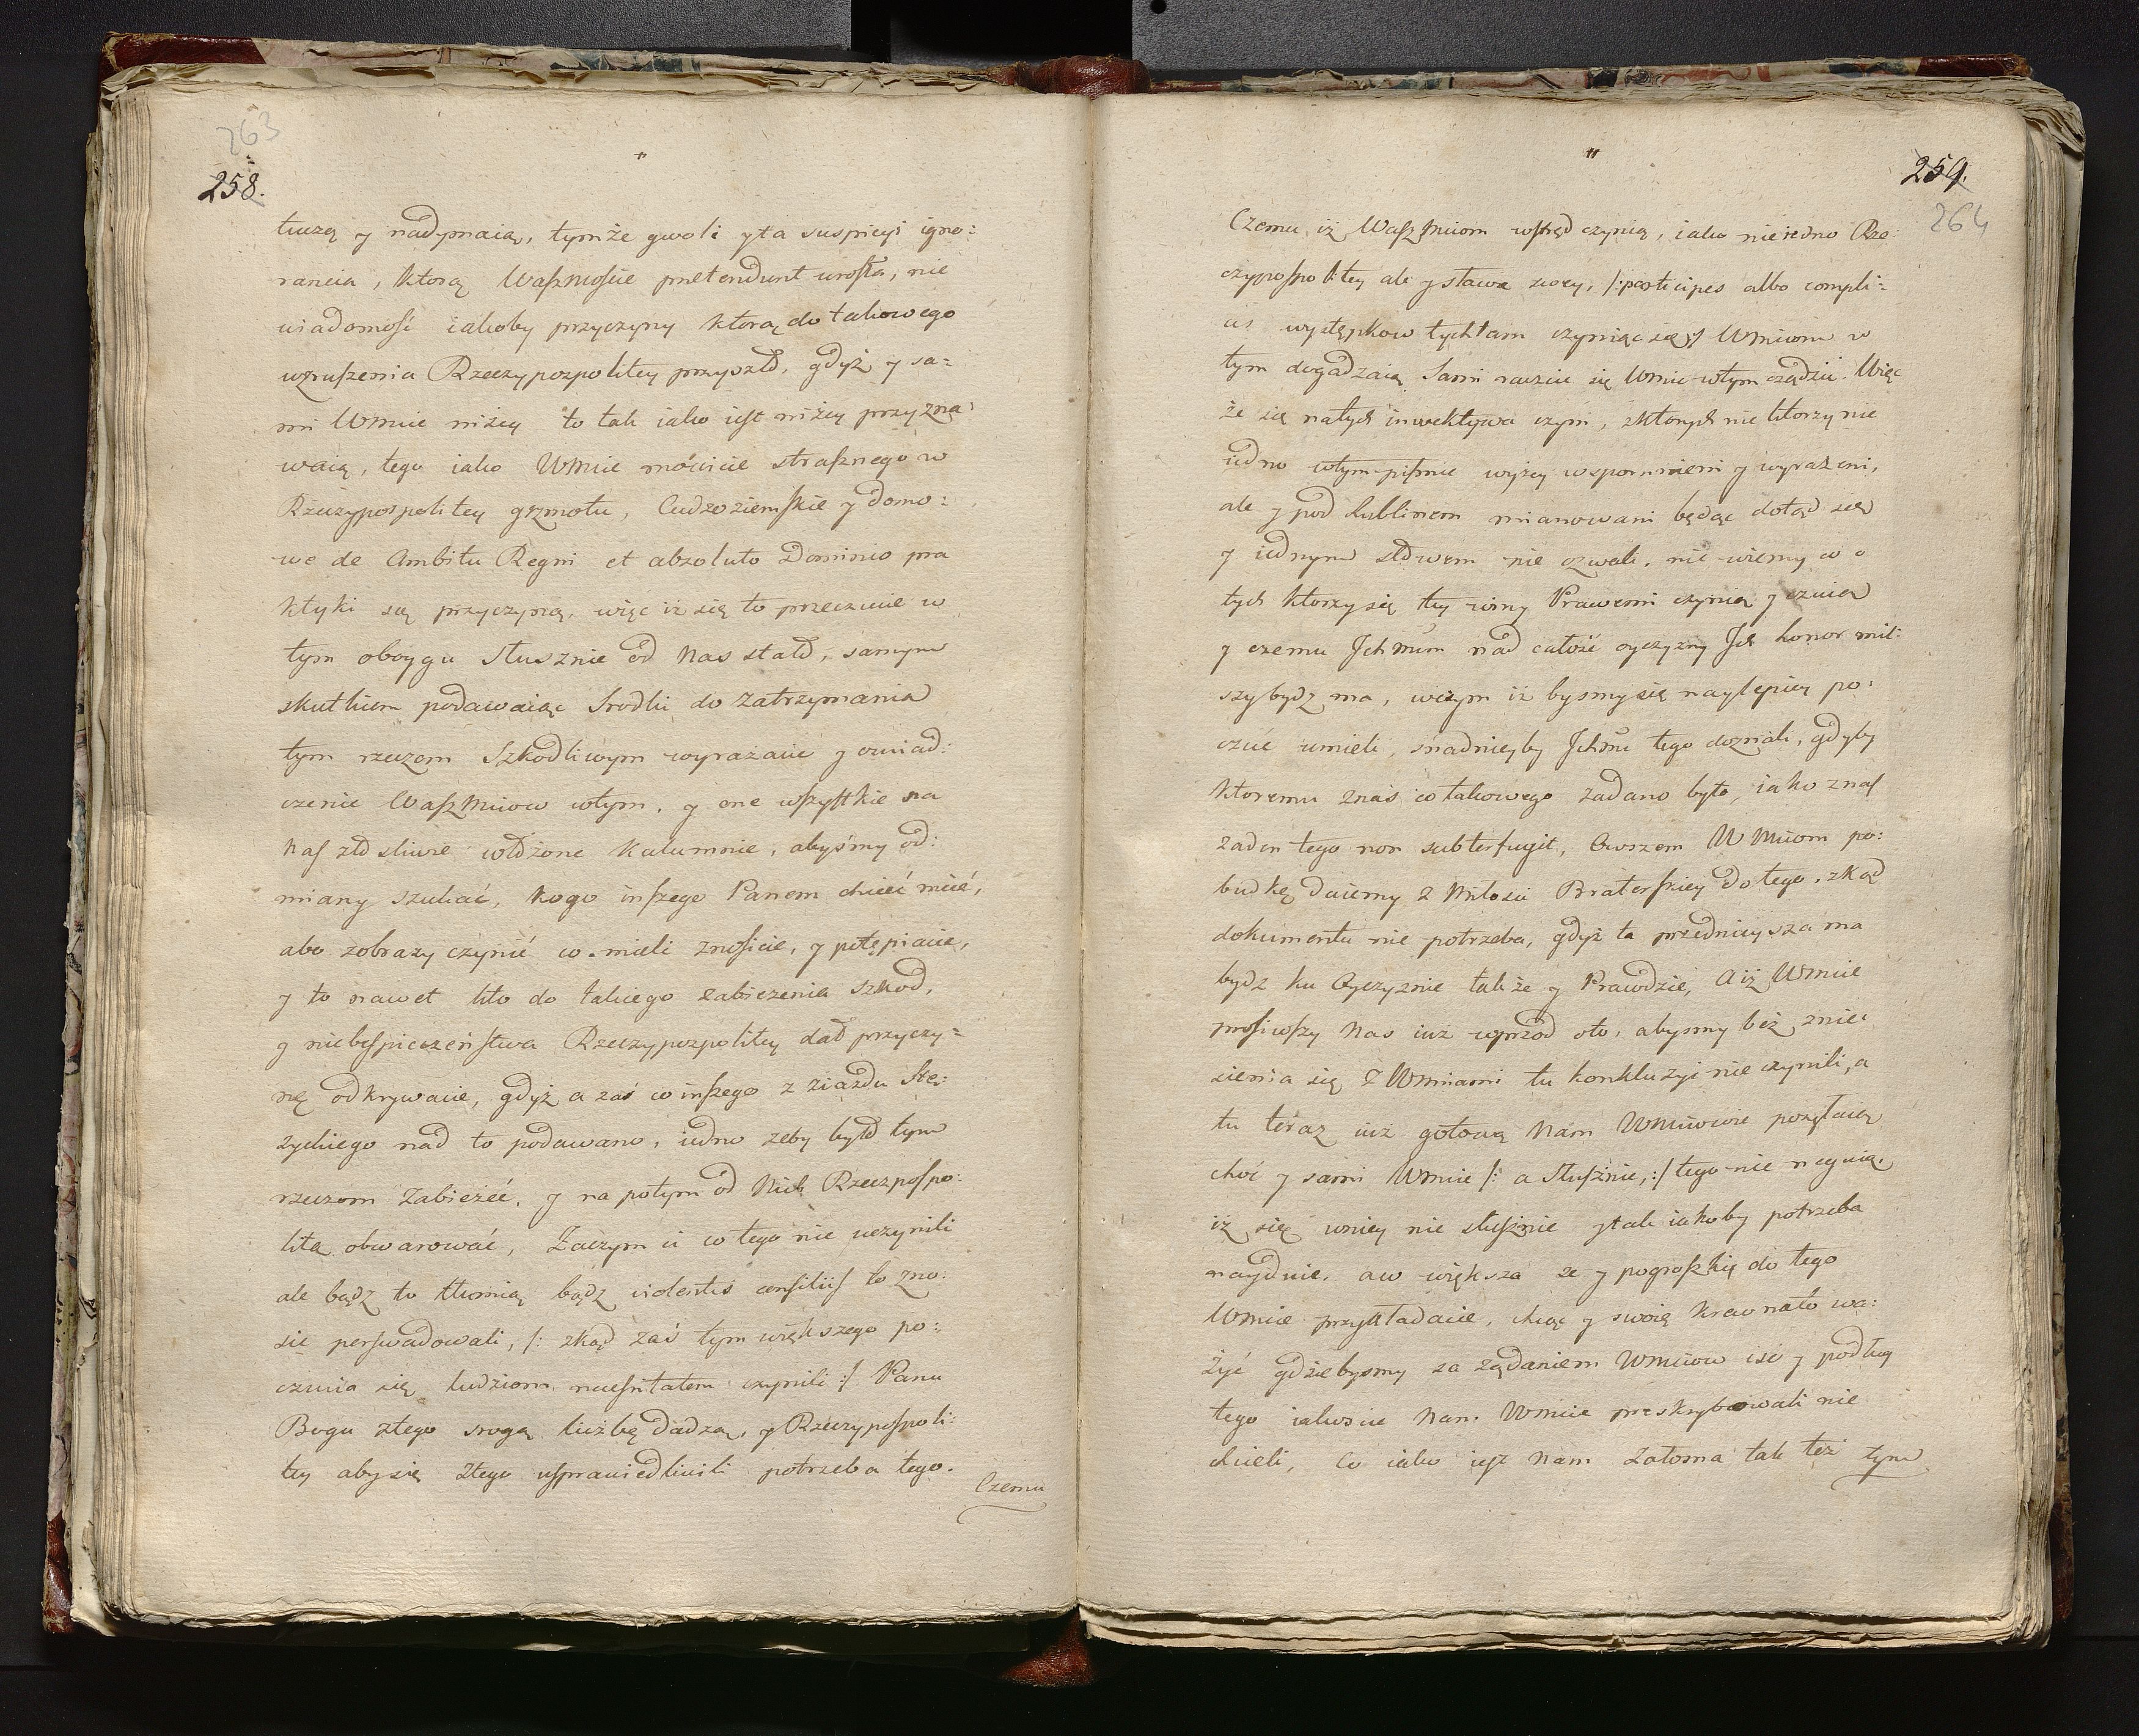 263
258.
tuczą y nadymaią, tymże gwoli yta suspicyi igno:
rancia, ktorą Waszmoście pretendunt urosła, nie
wiadomość iakoby przyczyny ktorą do takowego
wzruszenia Rzeczypospolitey przyszło, gdyż y sa=
mi Wmcie niżey to tak iako iest niżey przyzna:
waią, tego iako Wmcie mówicie strasznego w
Rzeczypospolitey grzmotu, Cudzoziemskie y domo:
we de Ambitu Regni et absoluto Dominio pra
ktyki są przyczyną, więc iż się to przeczucie w
tym oboygu słusznie od Nas stało, samym
skutkiem podawaiąc srodki do zatrzymania
tym rzeczom Szkodliwym wyrażacie y oswiad:
czenie Waszmciow wtym, y one wszystkie na
Nas złosliwie włożone Kalumnie, abyśmy od:
miany szukać, kogo inszego Panem chcieć mieć,
abo zobrazy czynić co mieli znosicie, y potępiacie,
y to nawet kto do takiego zabieżenia szkod,
y niebespieczeństwa Rzeczypospolitey dał przyczy=
nę odkrywacie, gdyż a zaś co inszego z ziazdu Stę:
życkiego nad to podawano, iedno żeby było tym
rzeczom zabieżeć, y na potym od Nich Rzeczpospo:
litą obwarować, Zaczym ci co tego nie uczynili
ale bądz to tłumią bądz violentis consiliis to zno:
sić perswadowali, /: zkąd zaś tym większego po:
czucia się ludziom czynili :/ Panu
Bogu ztego srogą liczbę dadzą, y Rzeczypospoli:
tey aby się ztego usprawiedliwili potrzeba tego.
Czemu
259.
264
Czemu iż Waszmciom wstręd czynią, iako nie iedno Rze:
czypospolitey ale y sławie swoey, /: participes albo compli:
ces występkow tych tam czyniąc się :/ Wmciom w
tym dogadzaią Sami raczcie się Wmcie wtym osądzić. Więc
że się na tych inwektywa czyni, zktorych nie ktorzy nie
iedno wtym pismie wyżey wspomnieni y wyrażeni,
ale y pod Lublinem mianowani będąc dotąd się
y iednym słowem nie ozwali, nie wiemy co o
tych ktorzy się tey winy Prawemi czynią y czuią
y czemu Ichmcm nad całość oyczyzny Ich honor mil:
szy bydz ma, wczym iż bysmy się naylepiey po:
czuć umieli, snadnieyby Ichmć tego doznali, gdyby
ktoremu znas co takowego zadano było, iako znas
żaden tego non subterfugit, Owszem Wmciom po:
budkę daiemy z Miłości Braterskiey do tego, zkąd
dokumentu nie potrzeba, gdyż ta przednieysza ma
bydz ku Oyczyznie także y Prawdzie, A iż Wmcie
prosiwszy Nas iuż wprzod oto, abysmy bez znie:
sienia się z Wmciami tu konkluzyi nie czynili, a
tu teraz iuż gotową Nam Wmciowie posyłaią
choć y sami Wmcie /: a słusznie, :/ tego nie neguią,
iż się wniey nie słusznie y tak iakoby potrzeba
naydnie, a co większa że y pogroszki do tego
Wmcie przykładacie, chcąc y swoię krew na to wa:
żyć gdziebysmy za żądaniem Wmciow iść y podług
tego iakoscie Nam Wmcie preskrybowali nie
chcieli, Co iako iest Nam żałosna tak też tym